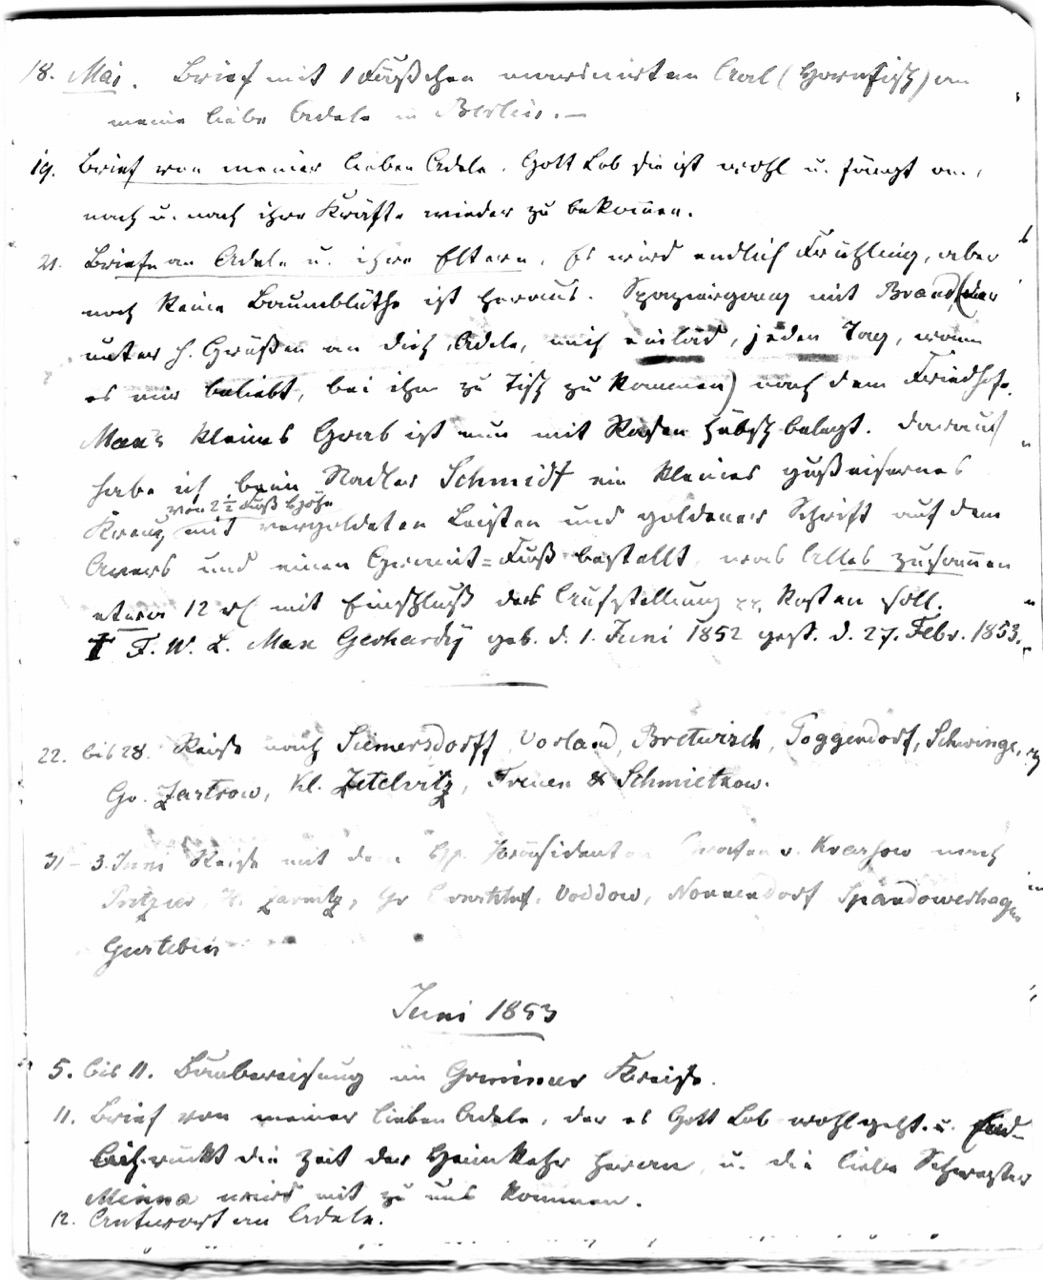 18. Mai. Brief mit 1 Fäßchen marinirten Aal (Hornfisch) an
meine liebe Adele in Berlin. —
19. Brief von meiner lieben Adele. Gott Lob sie ist wohl u. fängt an,
nach u. nach ihre Kräfte wieder zu bekommen.
21. Briefe an Adele u. ihre Eltern. Es wird endlich Frühling, aber
noch keine Baumblüthe ist heraus. Spaziergang mit Brand (der
unter h. Grüßen an dich, Adele, mich einlád, jeden Tag, wann
es mir beliebt, bei ihm zu Tisch zu kommen) nach dem Friedhofe.
Max's kleines Grab ist nun mit Rasen hübsch belegt. Darauf
habe ich beim Nadler Schmidt ein kleines gußeisernes
von 2 1/2 Fuß Höhe
Kreuz mit vergoldeten Leisten und goldener Schrift auf dem
Avers und einen Granit-Fuß bestellt, was Alles zusammen
etwa 12 rl mit Einschluß der Aufstellung kosten soll.
† F. W. L. Max Gerhardÿ geb. d. 1. Juni 1852 gest. d. 27. Febr. 1853.
22. bis 28. Reise nach Siemersdorff, Vorland, Bretwisch, Poggendorf, Schwinge,
Gr. Zastrow, Kl. Zetelvitz, Treuen & Schmietkow.
31 – 3. Juni Reise mit dem Präsidenten Grafen v. Krassow nach
Pritzier, Zarnitz, Gr Ernsthof, Voddow, Nonnendorf Spandowerhagen
Gustebin
Juni 1853
5. bis 11. Baubereisung im Grimmer Kreise.
11. Brief von meiner lieben Adele, der es Gott Lob wohl geht. u. End-
lich rückt die Zeit der Heimkehr heran u. die liebe Schwester
Minna wird mit zu uns kommen.
12. Antwort an Adele.